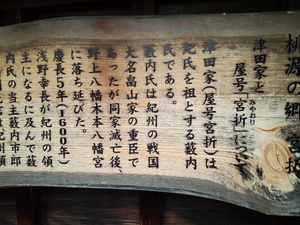 桃源の郷 宮折
津田家と
屋号「宮折」について
津田家(屋号宮折)は
紀氏を祖とする薮内
氏である。
薮内氏は紀州の戦国
大名畠山家の重臣で
あったが同家滅亡後、
野上八幡本八幡宮
に落ち延びた。
慶長5年(1600年)
浅野幸長が紀州の領
主になるに及んで薮
内氏の当主薮内市郎